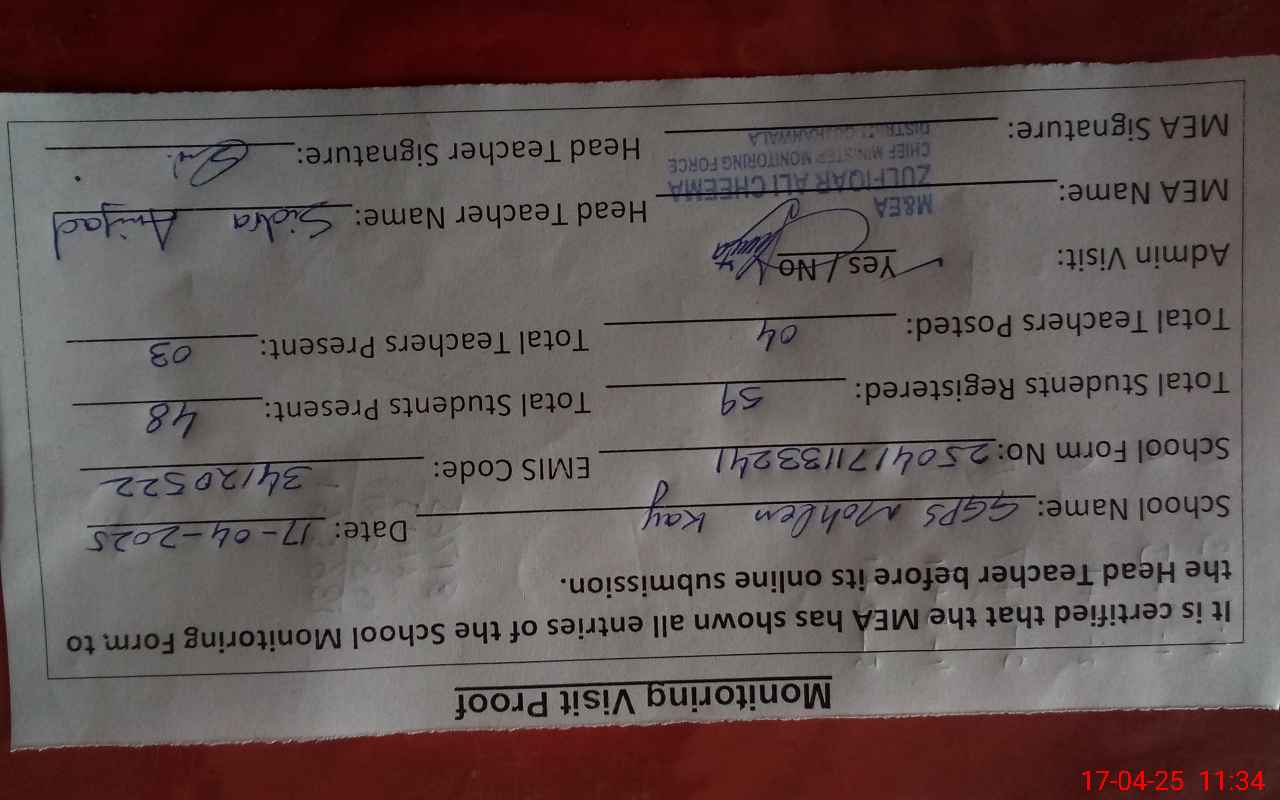 Monitoring Visit Proof
It is certified that the MEA has shown all entries of the School Monitoring Form, to
the Head Teacher before its online submission.
School Name: GGPS Mohlen Kay Date: 17-04-2025
School Form No: 250417113324 EMIS Code: 34120522
Total Students Registered: 59 Total Students Present: 48
Total Teachers Posted: 04 Total Teachers Present: 03
Admin Visit: Yes / No
MEA Name: Head Teacher Name: Sidra Amjad
M&EA
ZULFIQAR ALI CHEEMA
CHIEF MINISTER MONITORING FORCE
DISTRICT GUJRANWALA
MEA Signature: Head Teacher Signature:
17-04-25 11:34